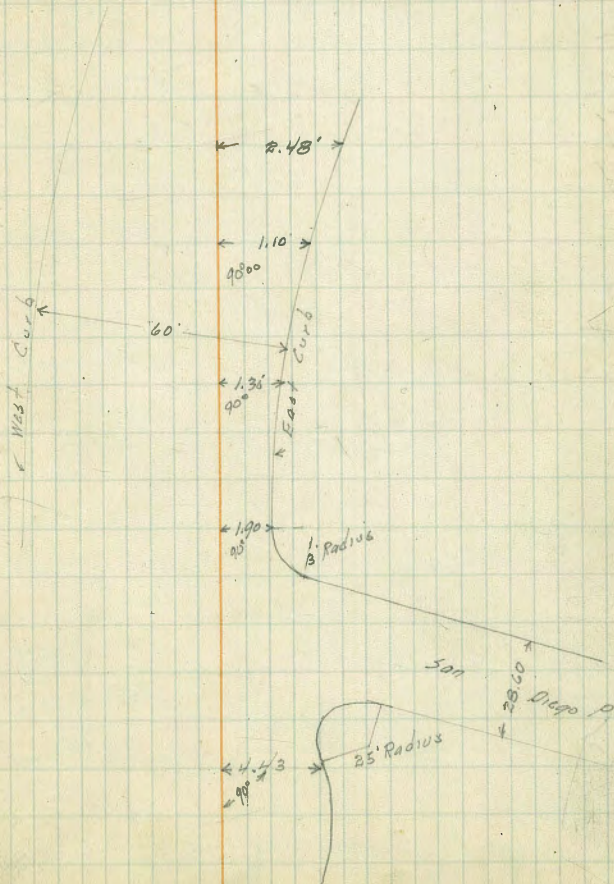 2.48'
1.10'
90°00
West Curb
60'
East Curb
1.35'
90°
1.90
90°
Radius
San Diego
28.60
25' Radius
4.43
90°